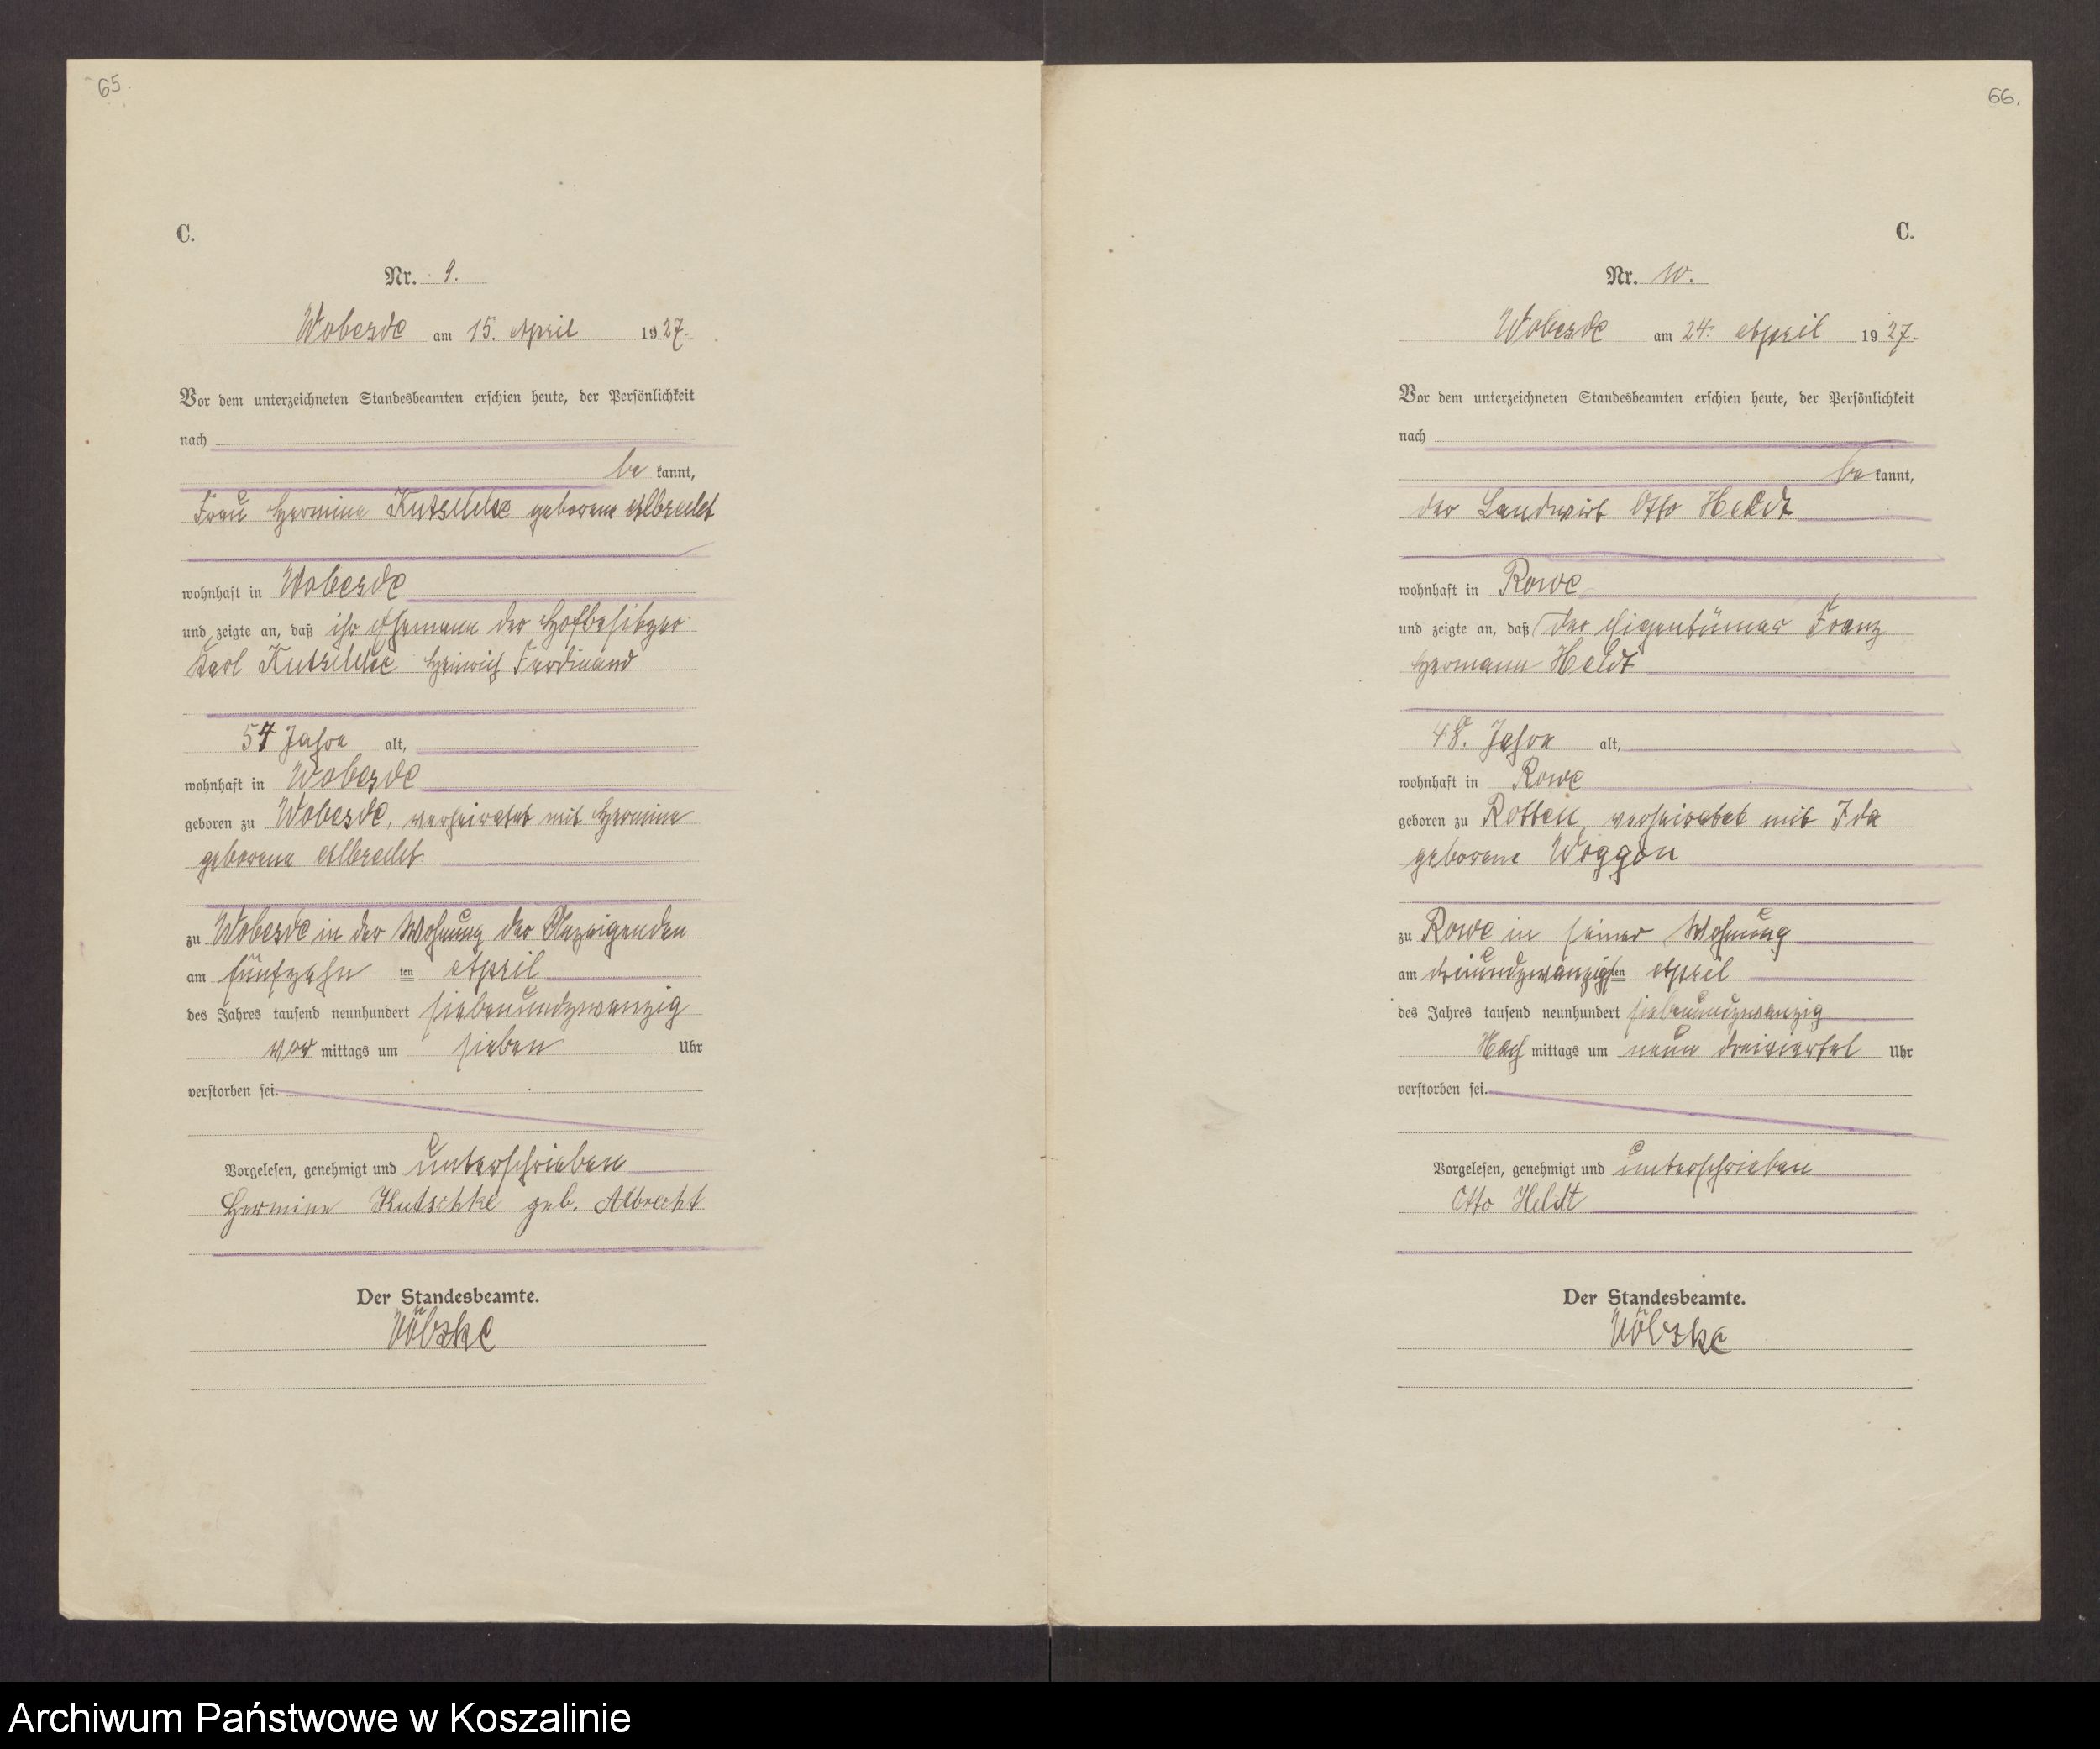 65.
C.
Nr. 9.
Wobesde am 15. April 1927.
Vor dem unterzeichneten Standesbeamten erschien heute, der Persönlichkeit
nach
be kannt,
Frau Hermine Kutschke geborene Albrecht
wohnhaft in Wobesde
und zeigte an, daß ihr Ehemann der Hofbesitzer
Karl Kutschke Heinrich Ferdinand
57 Jahre alt,
wohnhaft in Wobesde
geboren zu Wobesde, verheiratet mit Hermine
geborene Albrecht
zu Wobesde in der Wohnung der Anzeigenden
am fünfzehn ten April
des Jahres tausend neunhundert siebenundzwanzig
vor mittags um sieben Uhr
verstorben sei.
Vorgelesen, genehmigt und unterschrieben
Hermine Kutschke geb. Albrecht
Der Standesbeamte.
Völzke
66.
C.
Nr. 10.
Wobesde am 24. April 1927.
Vor dem unterzeichneten Standesbeamten erschien heute, der Persönlichkeit
nach
be kannt,
der Landwirt Otto Heldt
wohnhaft in Rowe
und zeigte an, daß der Eigentümer Franz
Hermann Heldt
48. Jahre alt,
wohnhaft in Rowe
geboren zu Rotten verheiratet mit Ida
geborene Woggon
zu Rowe in seiner Wohnung
am dreiundzwanzigsten April
des Jahres tausend neunhundert siebenundzwanzig
Nach mittags um neun dreiviertel Uhr
verstorben sei.
Vorgelesen, genehmigt und unterschrieben
Otto Heldt
Der Standesbeamte.
Völzke
Archiwum Państwowe w Koszalinie